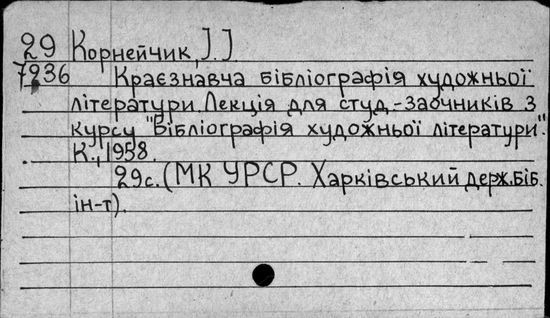 29 Корнейчик, І.І.
7236 Краєзнавча бібліографія художньої
літератури. Лекція для студ.-заочників 3
курсу "Бібліографія художньої літератури".
К., 1958.
29с. (МК УРСР. Харківський держ.біб.
ін-т).